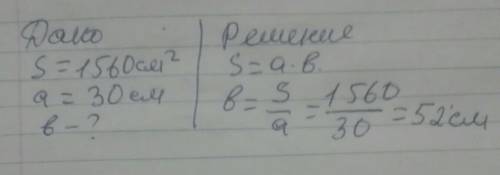 Дано
S = 1560 см²
a = 30 см
в - ?
Решение
S = a · в.
в = S/a = 1560/30 = 52 см